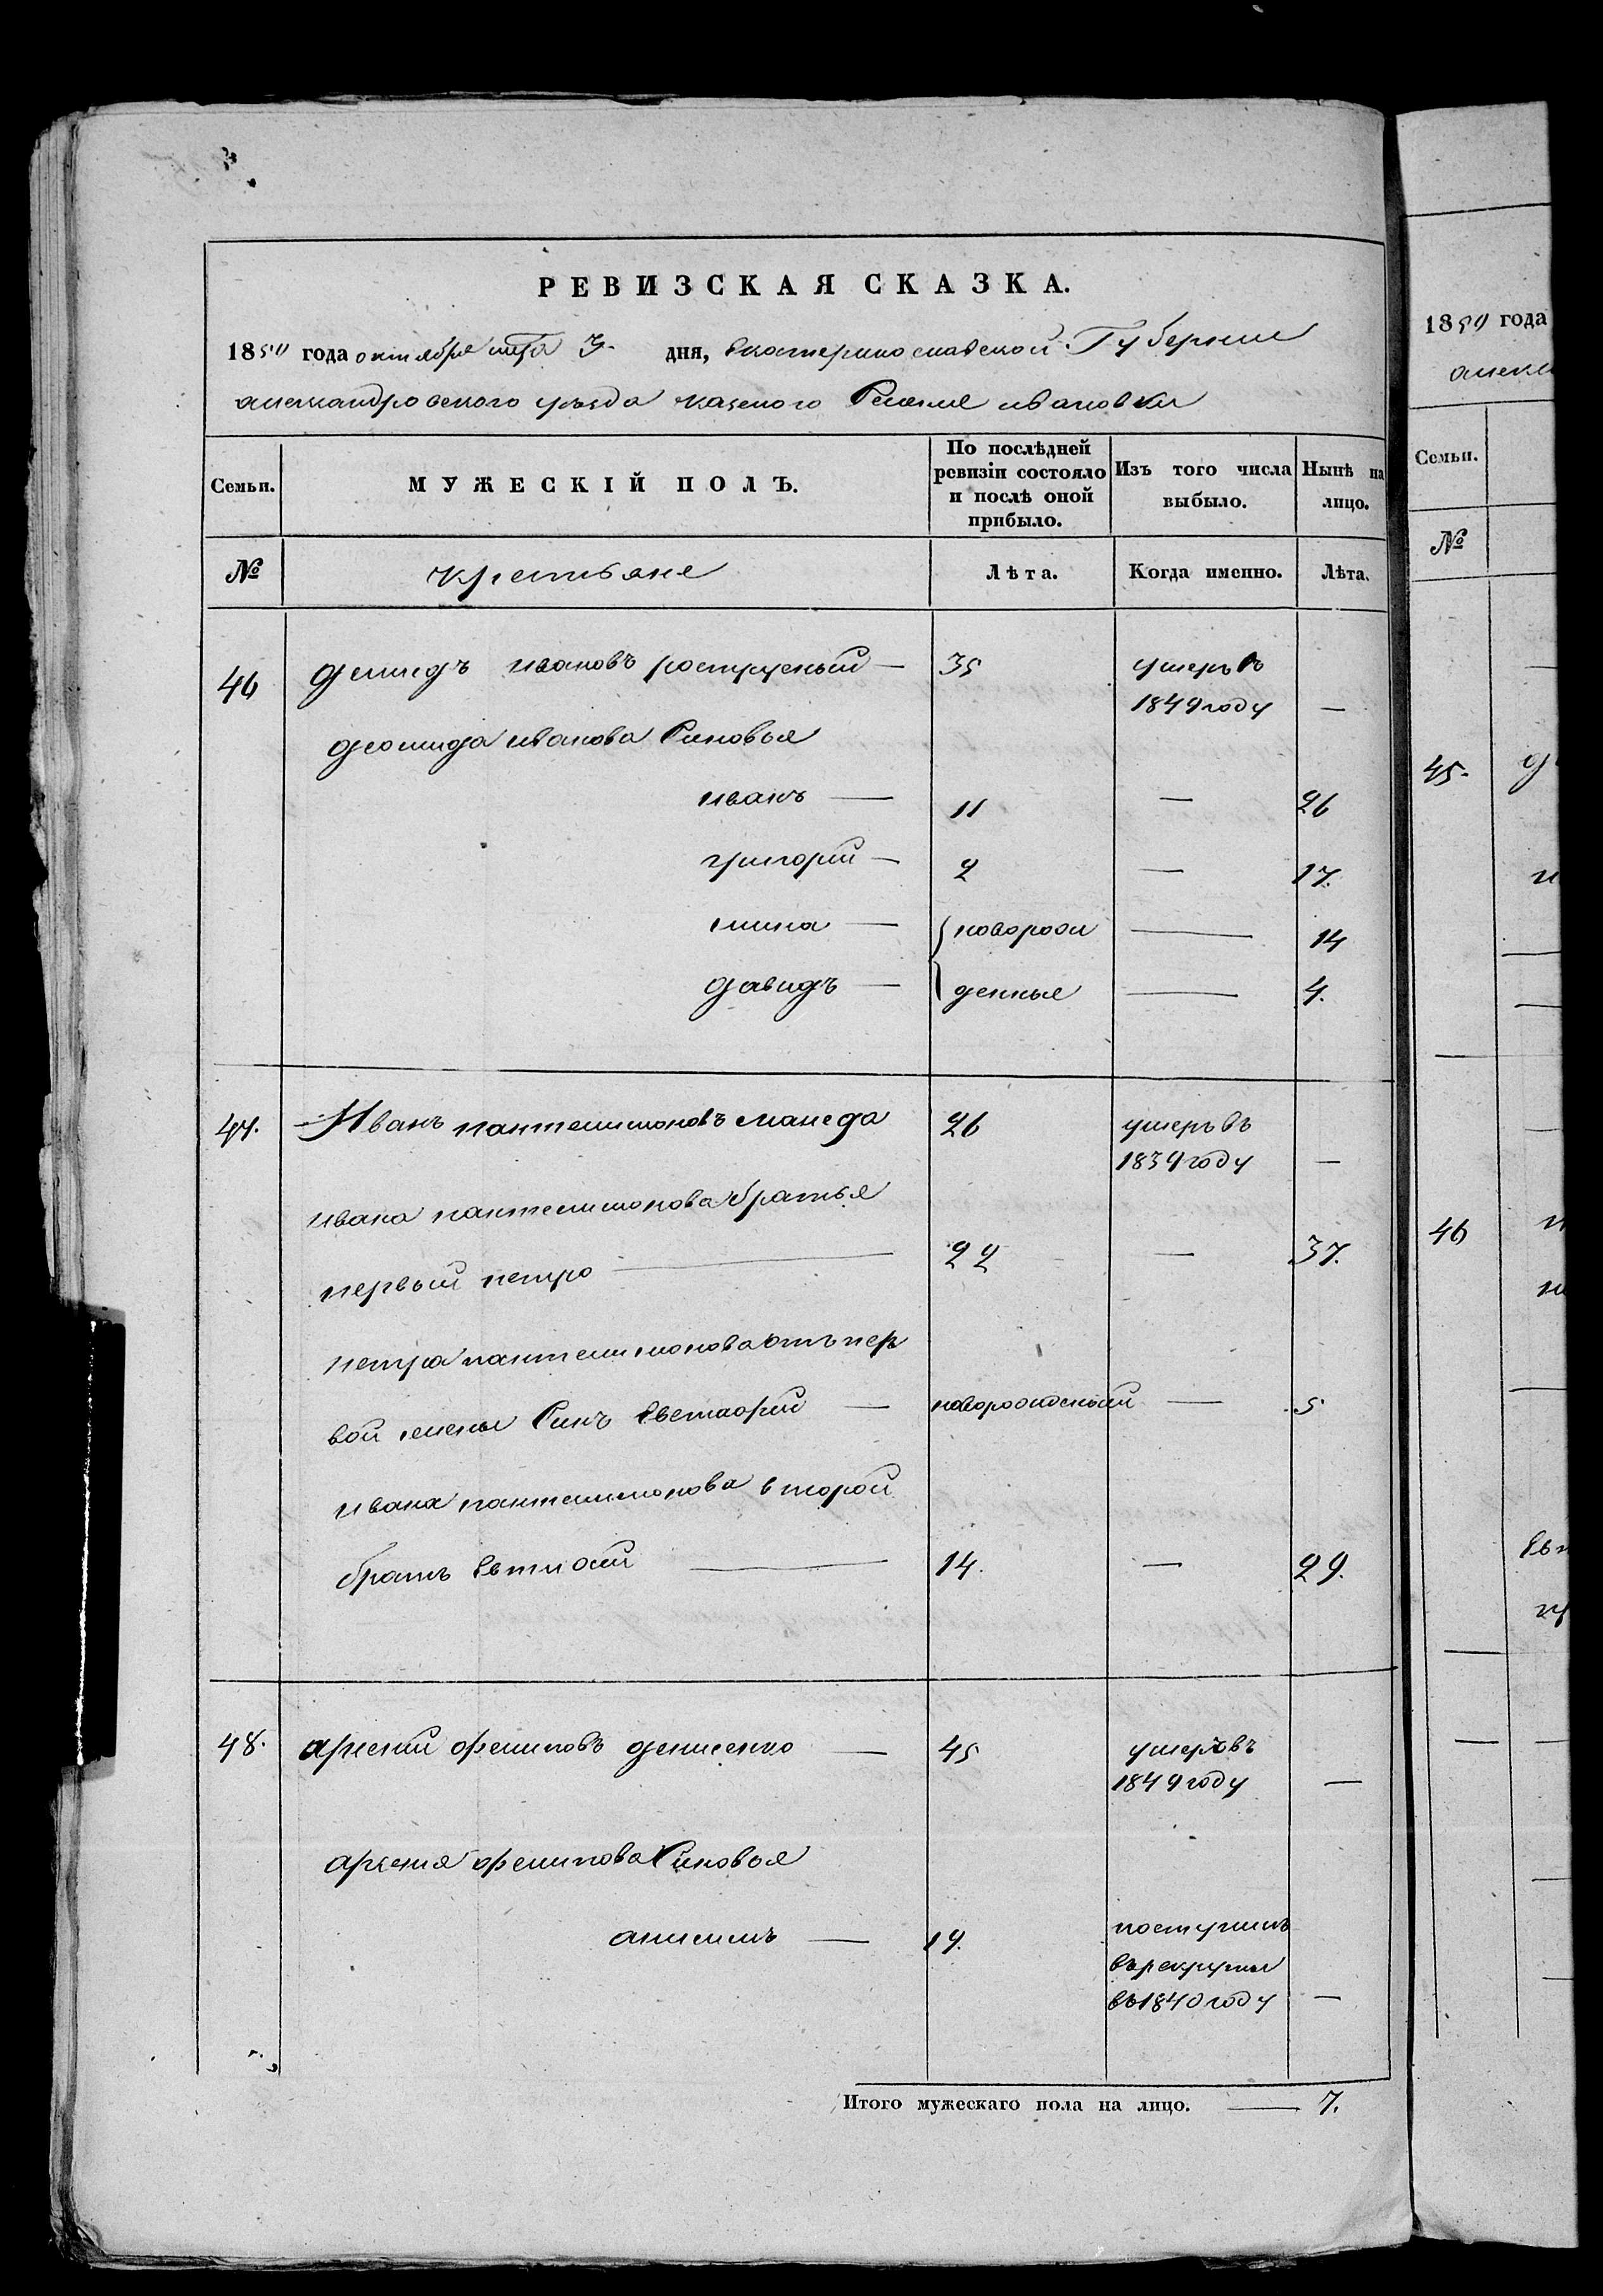 РЕВИЗСКАЯ СКАЗКА.
1850 года октября 3. дня, Екатеринославской Губернии
александровского уезда казеного Селения ивановки
Семьи.
МУЖЕСКІЙ ПОЛЪ.
По послѣдней ревизіи состояло и послѣ оной прибыло.
Изъ того числа выбыло.
Нынѣ на лицо.
№
крестьяне
Лѣта.
Когда именно.
Лѣта.
46 демидъ ивановъ 35 умеръ въ
1849 году —
деомида иванова Синовья
иванъ — 11 — 26
григорий — 2 — 17.
мина — новорож — 14
давидъ — денные — 4.
47. Иванъ пантелимоновъ 26 умеръ въ
1839 году —
ивана пантелимонова братья
первый петро — 22 — 37.
петра пантелимонова отъ пер
вой жены Синъ — новорожденый — 5
ивана пантелимонова второй
братъ — 14. — 29.
48. арсений филиповъ денисенко — 45 умеръ въ
1849 году —
арсения филипова Синовья
анисимъ — 19. поступилъ
въ рекруты
въ 1840 году —
Итого мужескаго пола на лицо. — 7.
1850 года
алекса
Семьи.
№
45.
46